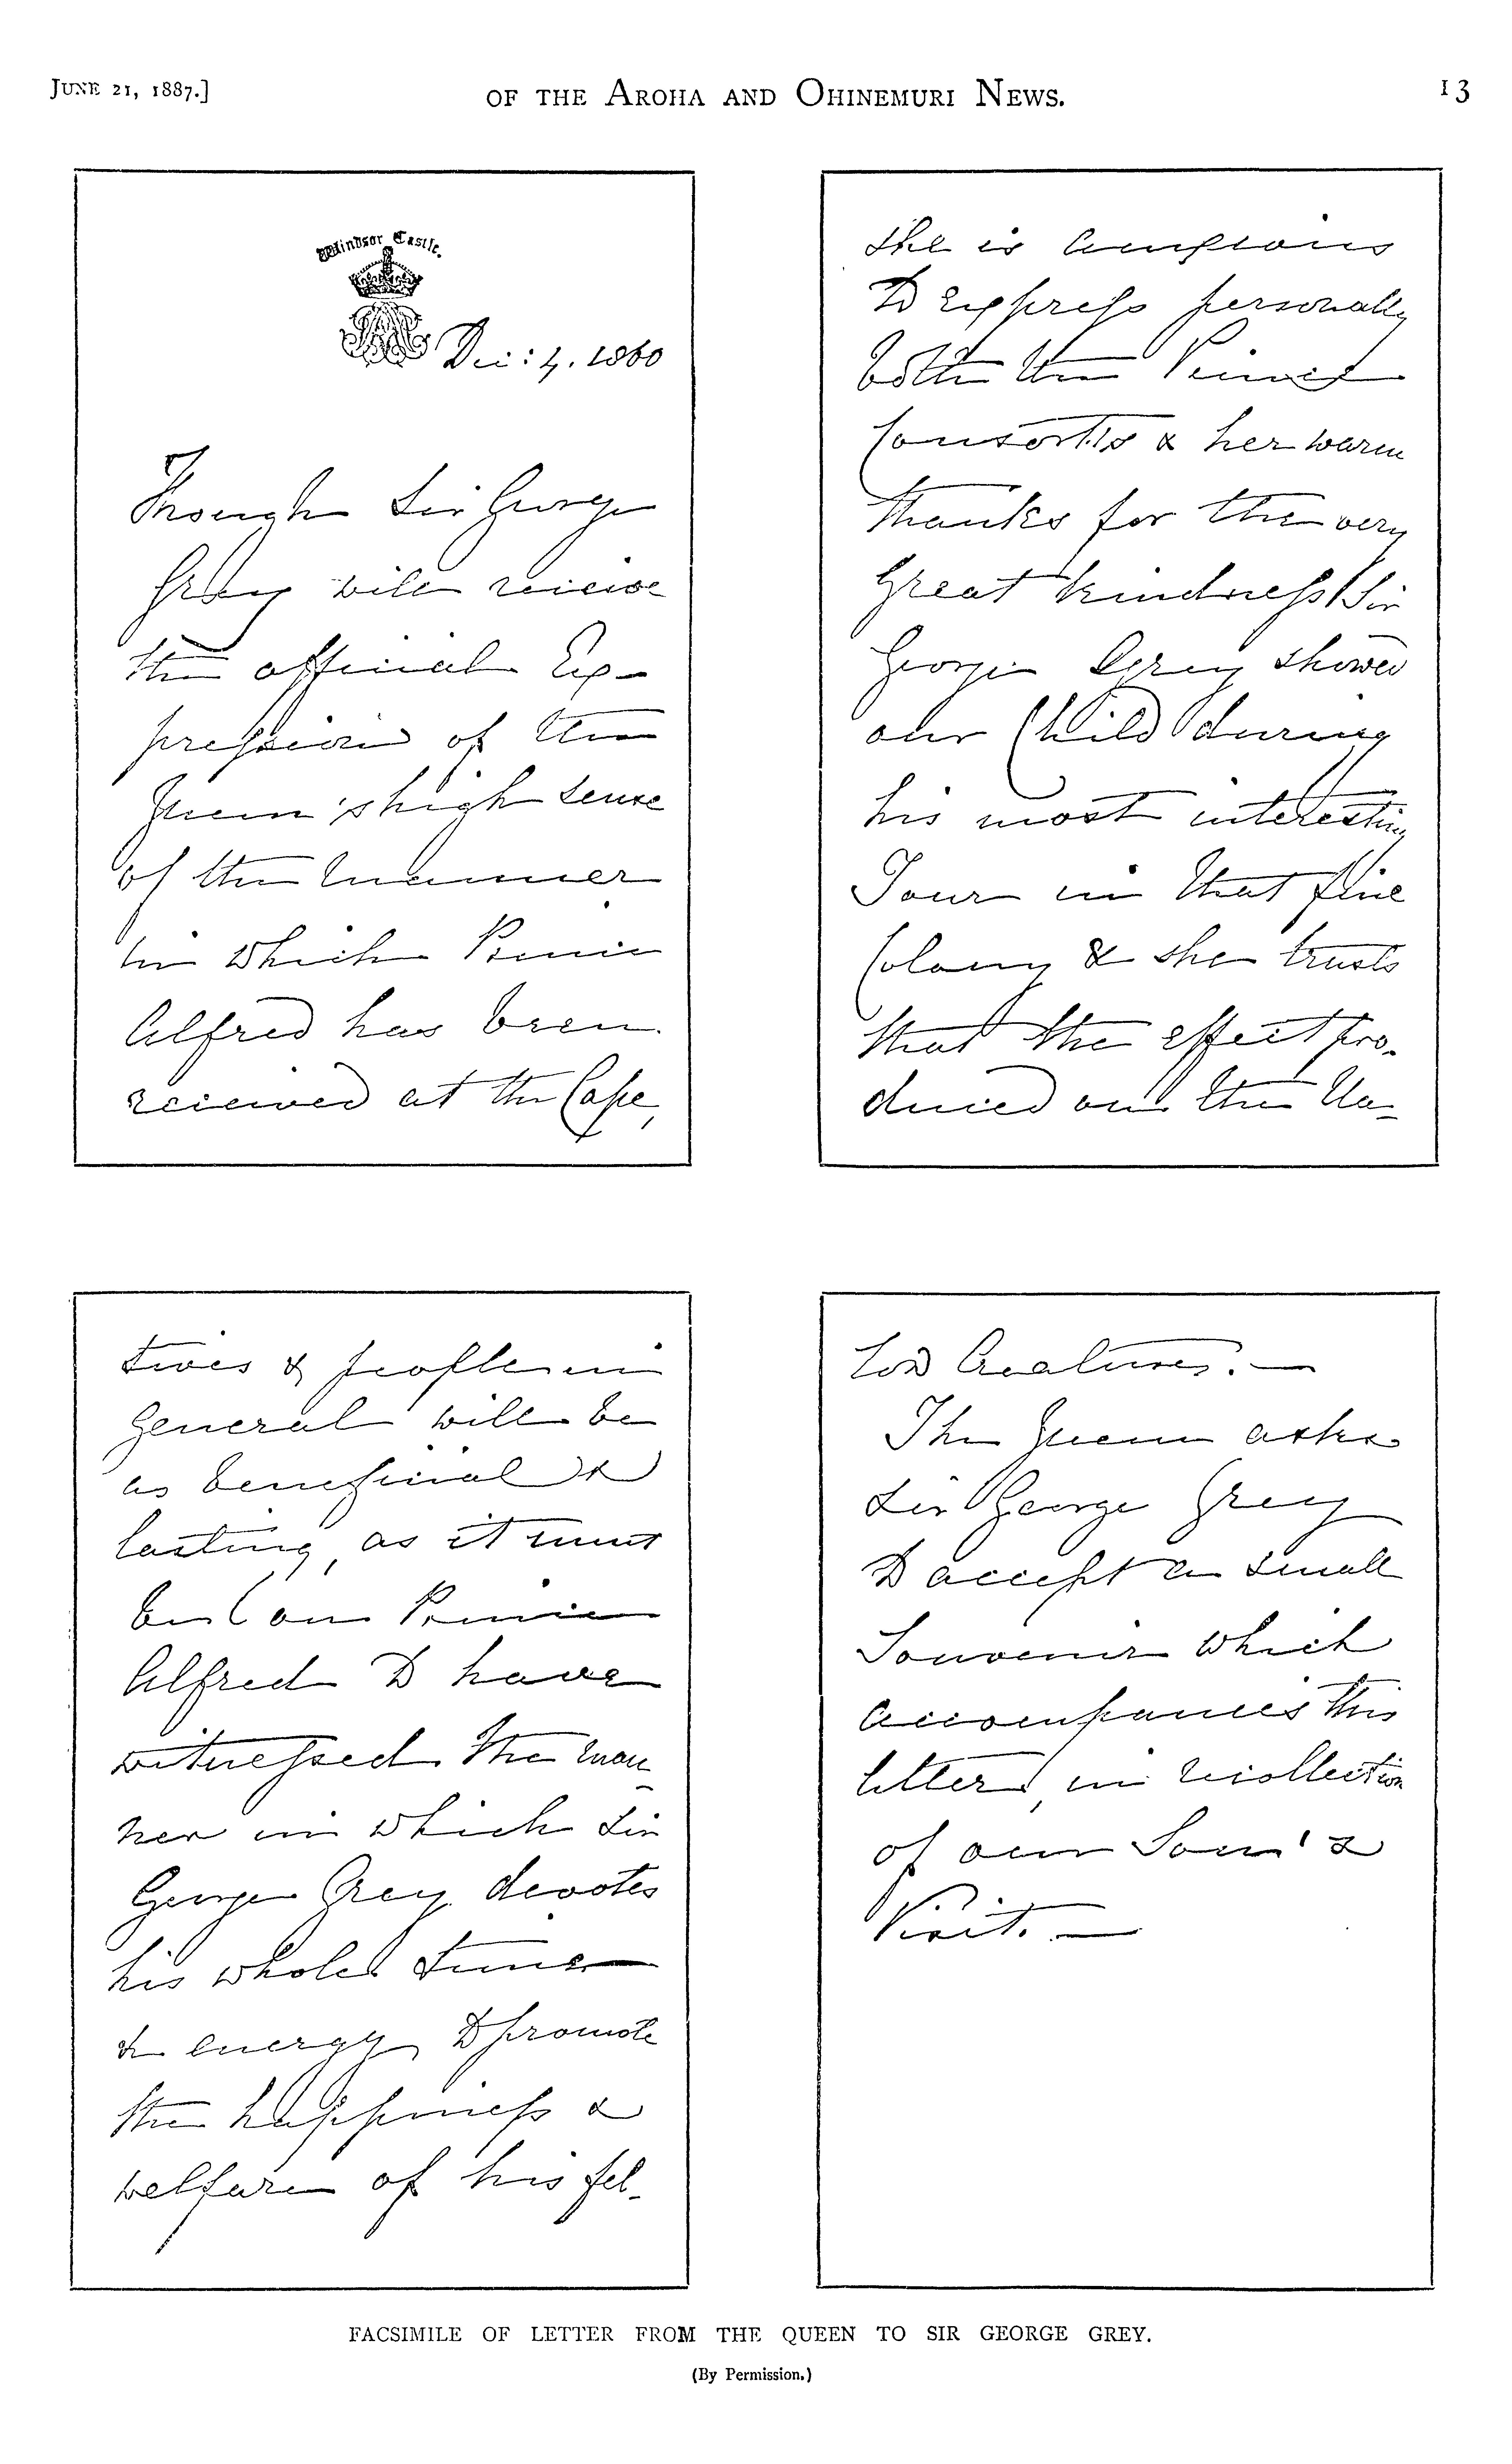 JUNE 21, 1887.]
OF THE AROHA AND OHINEMURI NEWS.
13
Windsor Castle.
Dec: 4. 1860
Though Sir George
Grey will receive
the official Ex-
pression of the
Queen's high sense
of the manner
in which Prince
Alfred has been
received at the Cape,
she is anxious
to express personally
both the Prince
Consort's & her warm
thanks for the very
great kindness Sir
George Grey showed
our Child during
his most interesting
Tour in that fine
Colony & she trusts
that the effect pro-
duced on the Na-
tives & people in
general will be
as beneficial &
lasting, as it must
be on Prince
Alfred to have
witnessed the man
ner in which Sir
George Grey devotes
his whole time
& energy to promote
the happiness &
welfare of his fel-
low Creatures. —
The Queen asks
Sir George Grey
to accept a small
Souvenir which
accompanies this
letter, in recollection
of our Son's
Visit. —
FACSIMILE OF LETTER FROM THE QUEEN TO SIR GEORGE GREY.
(By Permission.)